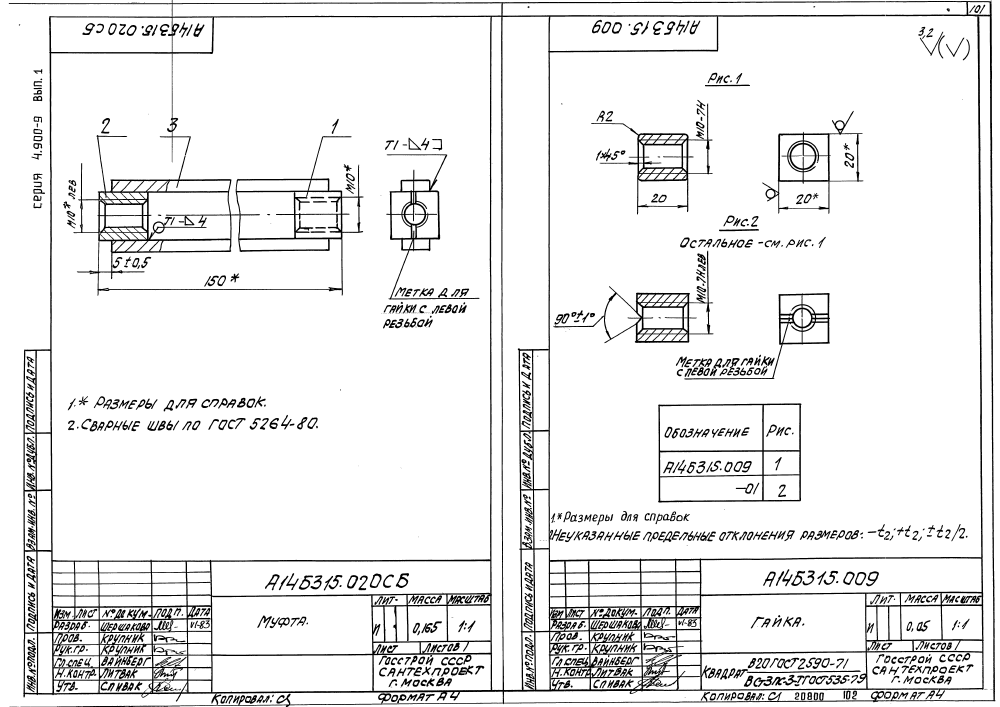 101
серия 4.900-9 вып. 1
А14Б315.020СБ
2
3
1
М10* лев
М10*
Т1-⊿4
Т1-⊿4
5±0,5
150*
Метка для
гайки с левой
резьбой
1.* Размеры для справок.
2. Сварные швы по ГОСТ 5264-80.
Подпись и дата
Инв. № дубл.
Взам. инв. №
Подпись и дата
Инв. № подл.
А14Б315.020СБ
Изм Лист № докум. Подп. Дата
Разраб. Шершакова VI-83
Пров. Крупник
Рук.гр. Крупник
Гл.спец. Вайнберг
Н.контр. Литвак
Утв. Спивак
Муфта.
Лит. Масса Масштаб
И 0,165 1:1
Лист Листов 1
Госстрой СССР
Сантехпроект
г. Москва
Копировал: Формат А4
А14Б315.009
3,2
Рис.1
R2
1×45°
М10-7Н
20
20*
20*
Рис.2
Остальное - см. рис. 1
90°±1°
М10-7Н лев
Метка для гайки
с левой резьбой
Обозначение Рис.
А14Б315.009 1
-01 2
1.* Размеры для справок
Неуказанные предельные отклонения размеров: -t2; +t2; ±t2/2.
Подпись и дата
Инв. № дубл.
Взам. инв. №
Подпись и дата
Инв. № подл.
А14Б315.009
Изм Лист № докум. Подп. Дата
Разраб. Шершакова VI-83
Пров. Крупник
Рук.гр. Крупник
Гл.спец. Вайнберг
Н.контр. Литвак
Утв. Спивак
Гайка.
Лит. Масса Масштаб
И 0,05 1:1
Лист Листов 1
Квадрат В20 ГОСТ 2590-71
ГОСТ 535-79
Госстрой СССР
Сантехпроект
г. Москва
Копировал: 20800 102 Формат А4